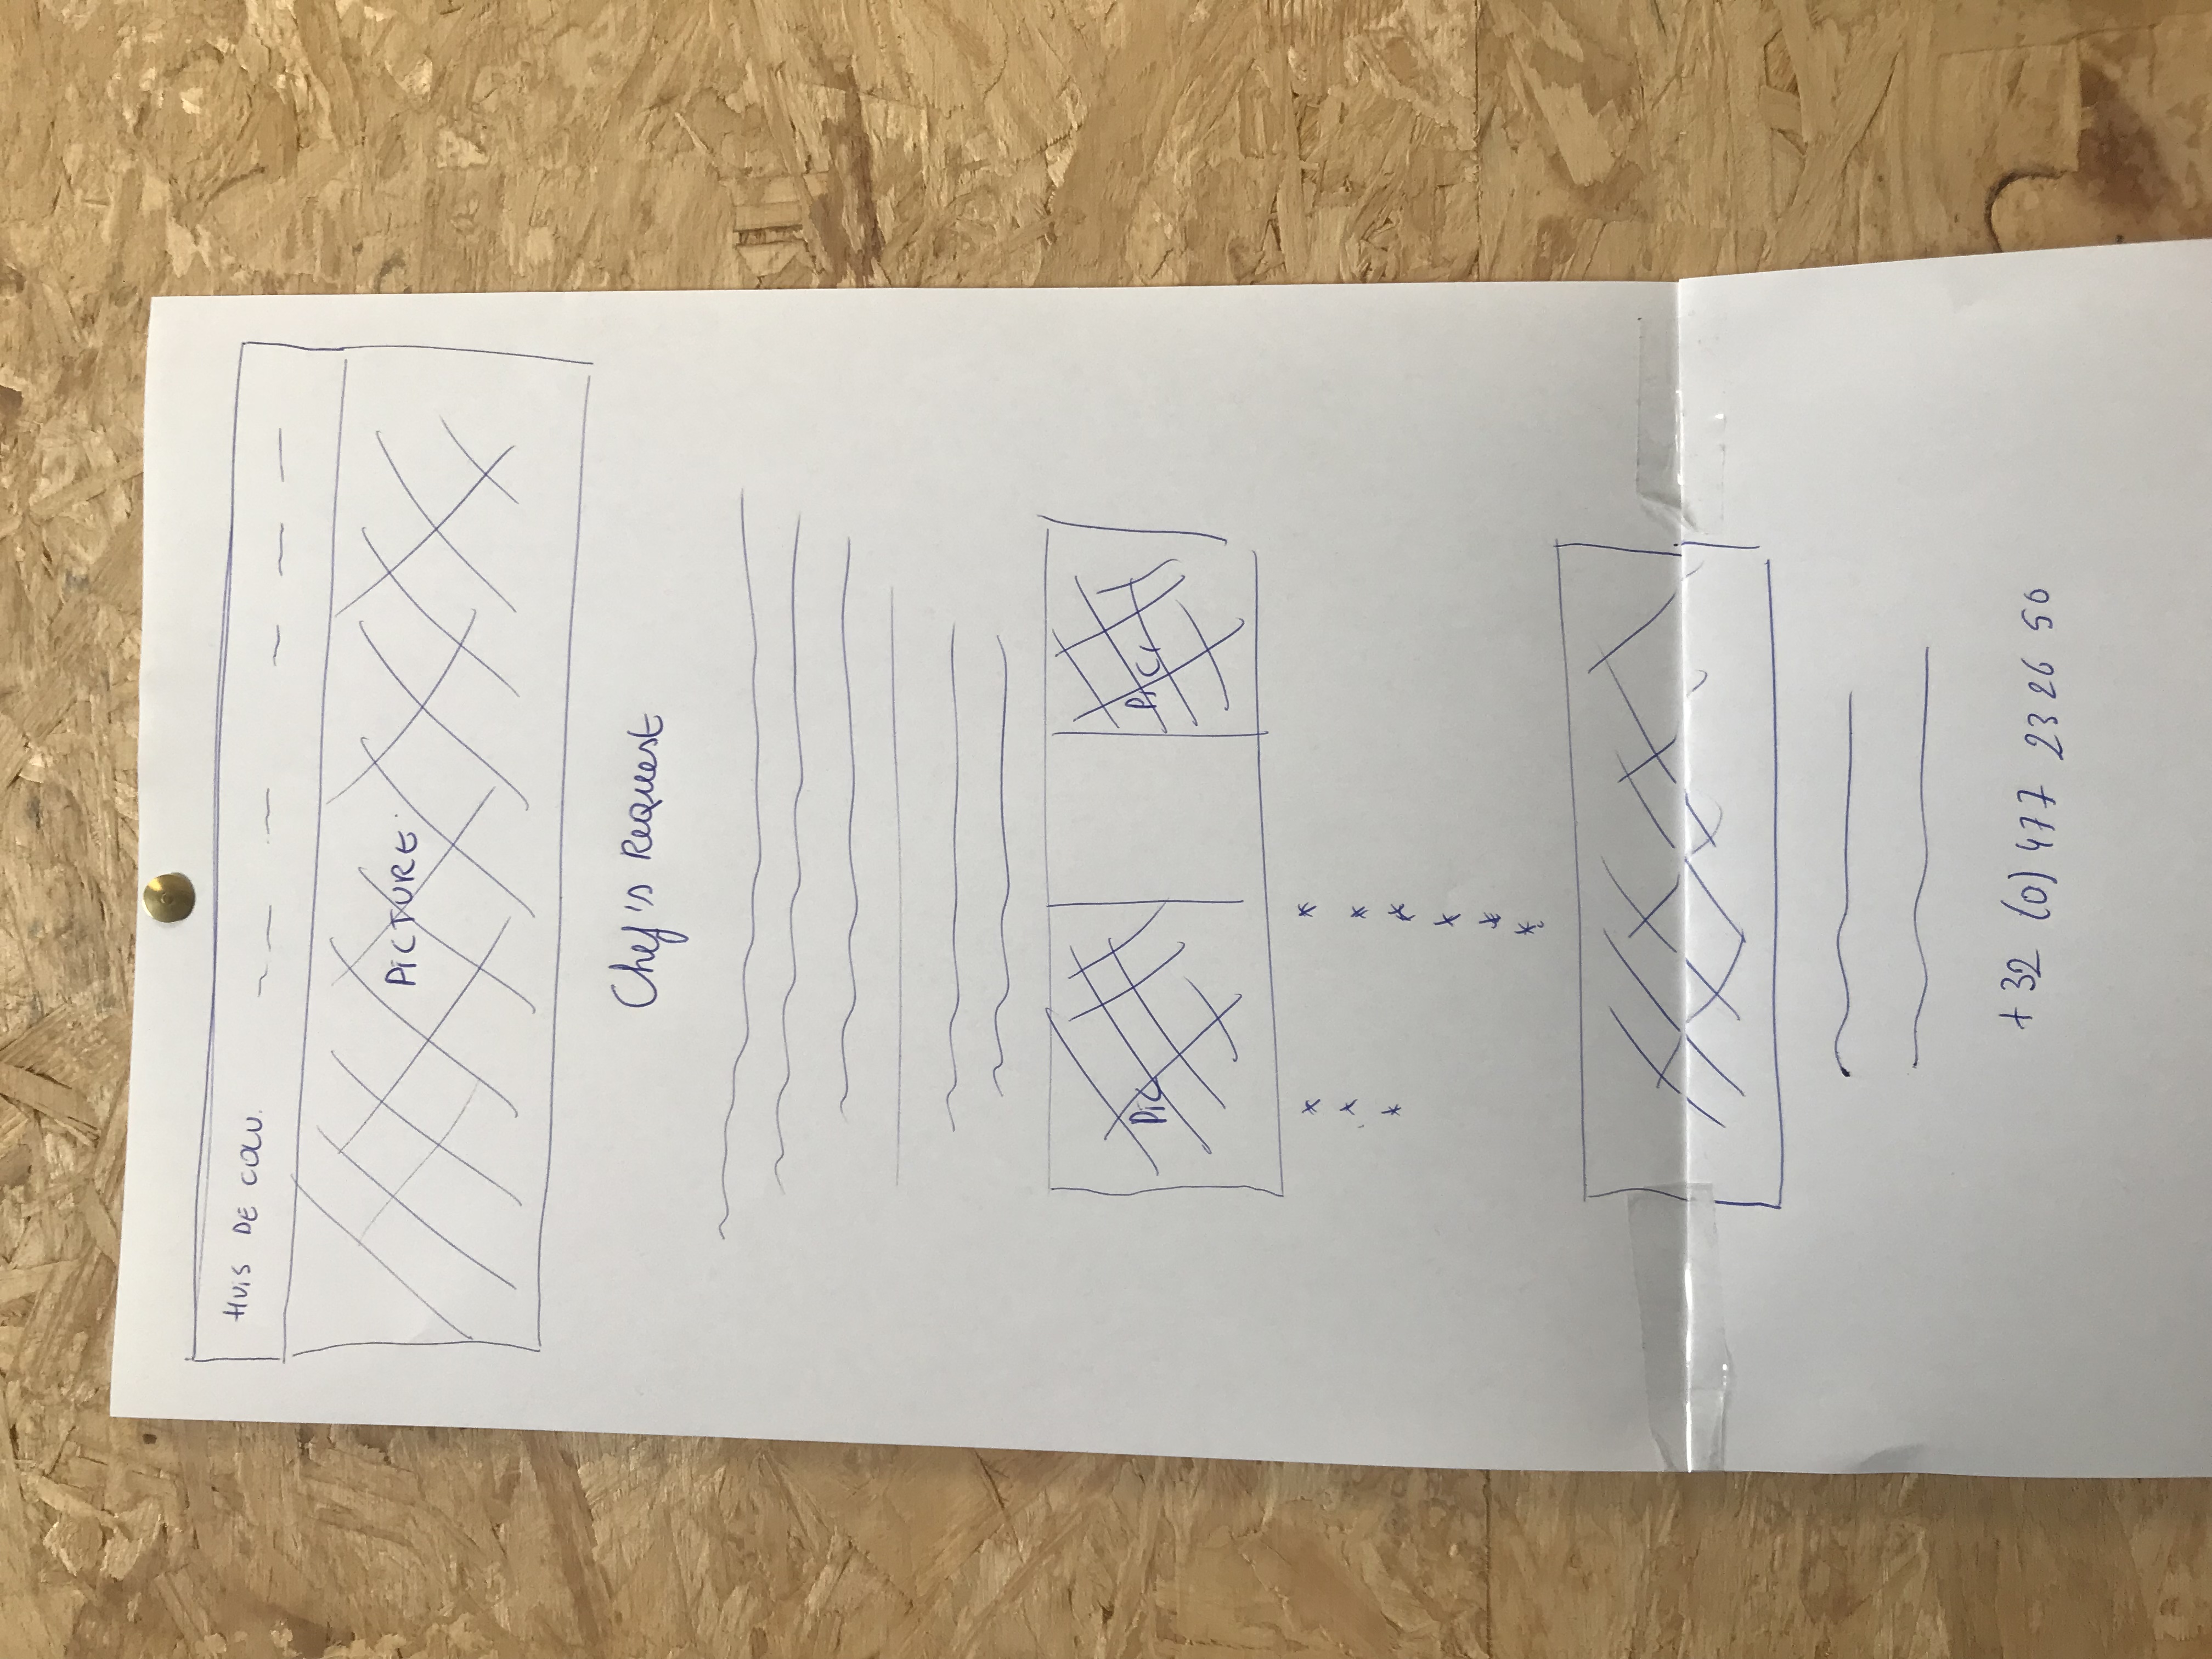 HUIS DE COLV.
PICTURE
Chef's Request
PIC PIC
* *
* *
* *
*
*
*
+32 (0) 477 23 26 50